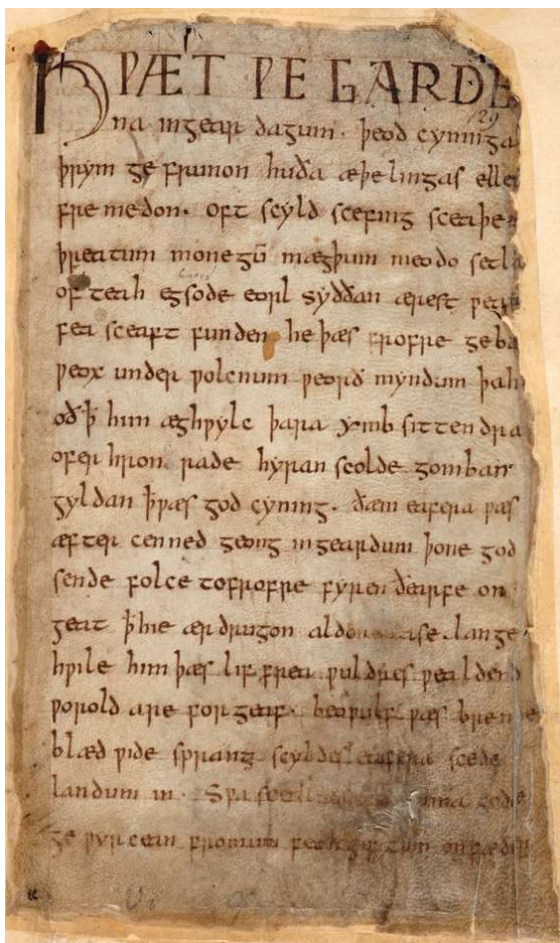 HǷÆT ǷE GARDE
129
na ingear dagum. þeod cyninga
þrym ge frunon huða æþelingas elle
fre medon. oft scyld scefing sceaþe
þreatum monegū mægþum meodo setla
of teah egsode eorl syððan ærest
fea sceaft funden he þæs frofre geba
ƿeox under ƿolcnum ƿeorð myndum þah
oð ꝥ him æghƿylc þara ymb sittendra
ofer hron rade hyran scolde gomban
gyldan ꝥ ƿæs god cyning. ðæm eafera ƿæs
æfter cenned geong ingeardum þone god
sende folce tofrofre fyren ðearfe on
geat ꝥ hie ær drugon aldor ase lange
hƿile him þæs lif frea ƿuldres ƿealdend
ƿorold are for geaf. beoƿulf ƿæs breme
blæd ƿide sprang scyldes eafera scede
landum in. Sƿa sceal guma gode
ge ƿyrcean fromum feohgiftum on fæder